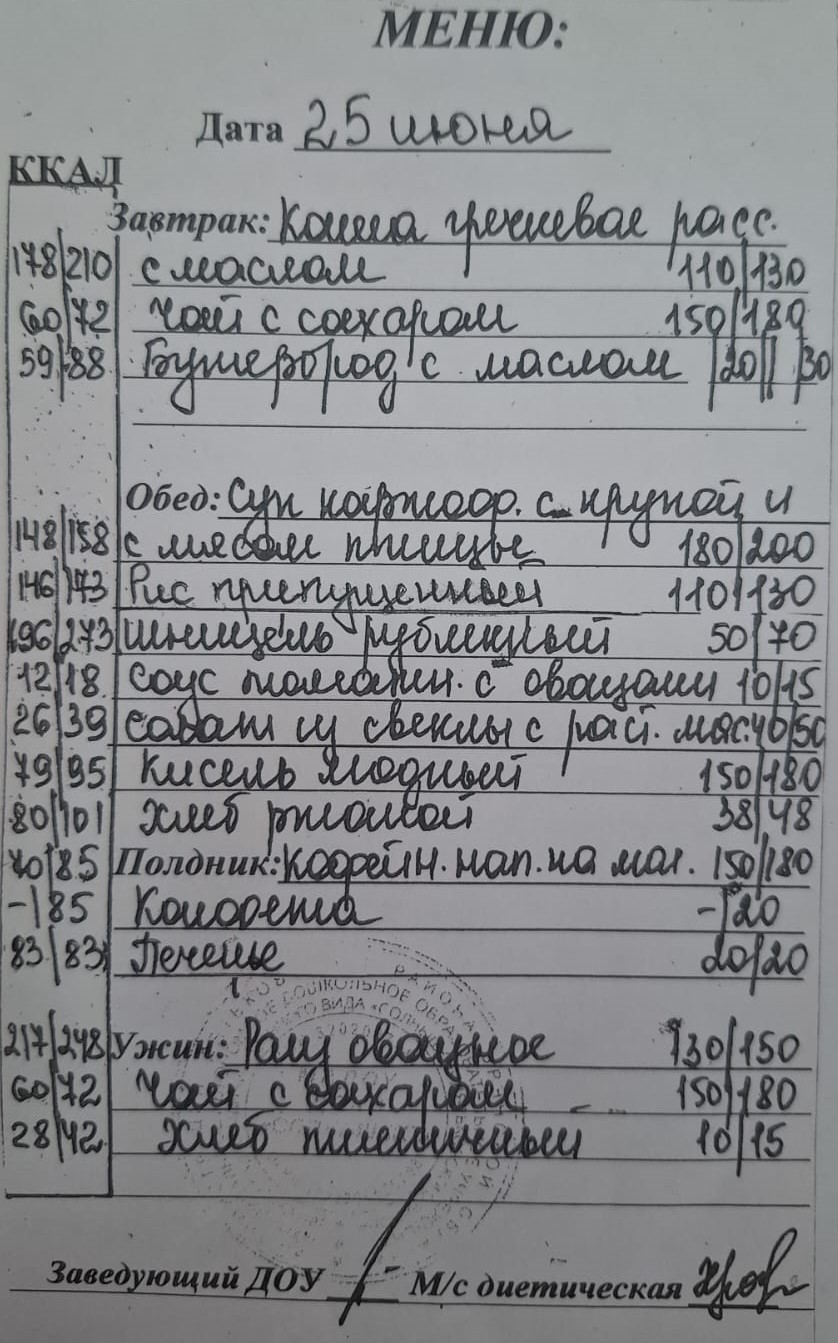 МЕНЮ:
Дата 25 июня
ККАЛ
Завтрак: Каша гречневая расс.
178|210 с маслом 110|130
60|72 Чай с сахаром 150|180
59|88 Бутерброд с маслом |20| |30
Обед: Суп картоф. с крупой и
148|158 с мясом птицы 180|200
146|173 Рис припущенный 110|130
196|273 Шницель рубленый 50|70
12|18 Соус томатн. с овощами 10|15
26|39 Салат из свеклы с раст. мас. 40|50
79|95 Кисель плодный 150|180
80|101 Хлеб ржаной 38|48
70|85 Полдник: Кофейн. нап. на мол. 150|180
-|85 Конфета -|20
83|83 Печенье 20|20
217|248 Ужин: Рагу овощное 130|150
60|72 Чай с сахаром 150|180
28|42 Хлеб пшеничный 10|15
Заведующий ДОУ М/с диетическая